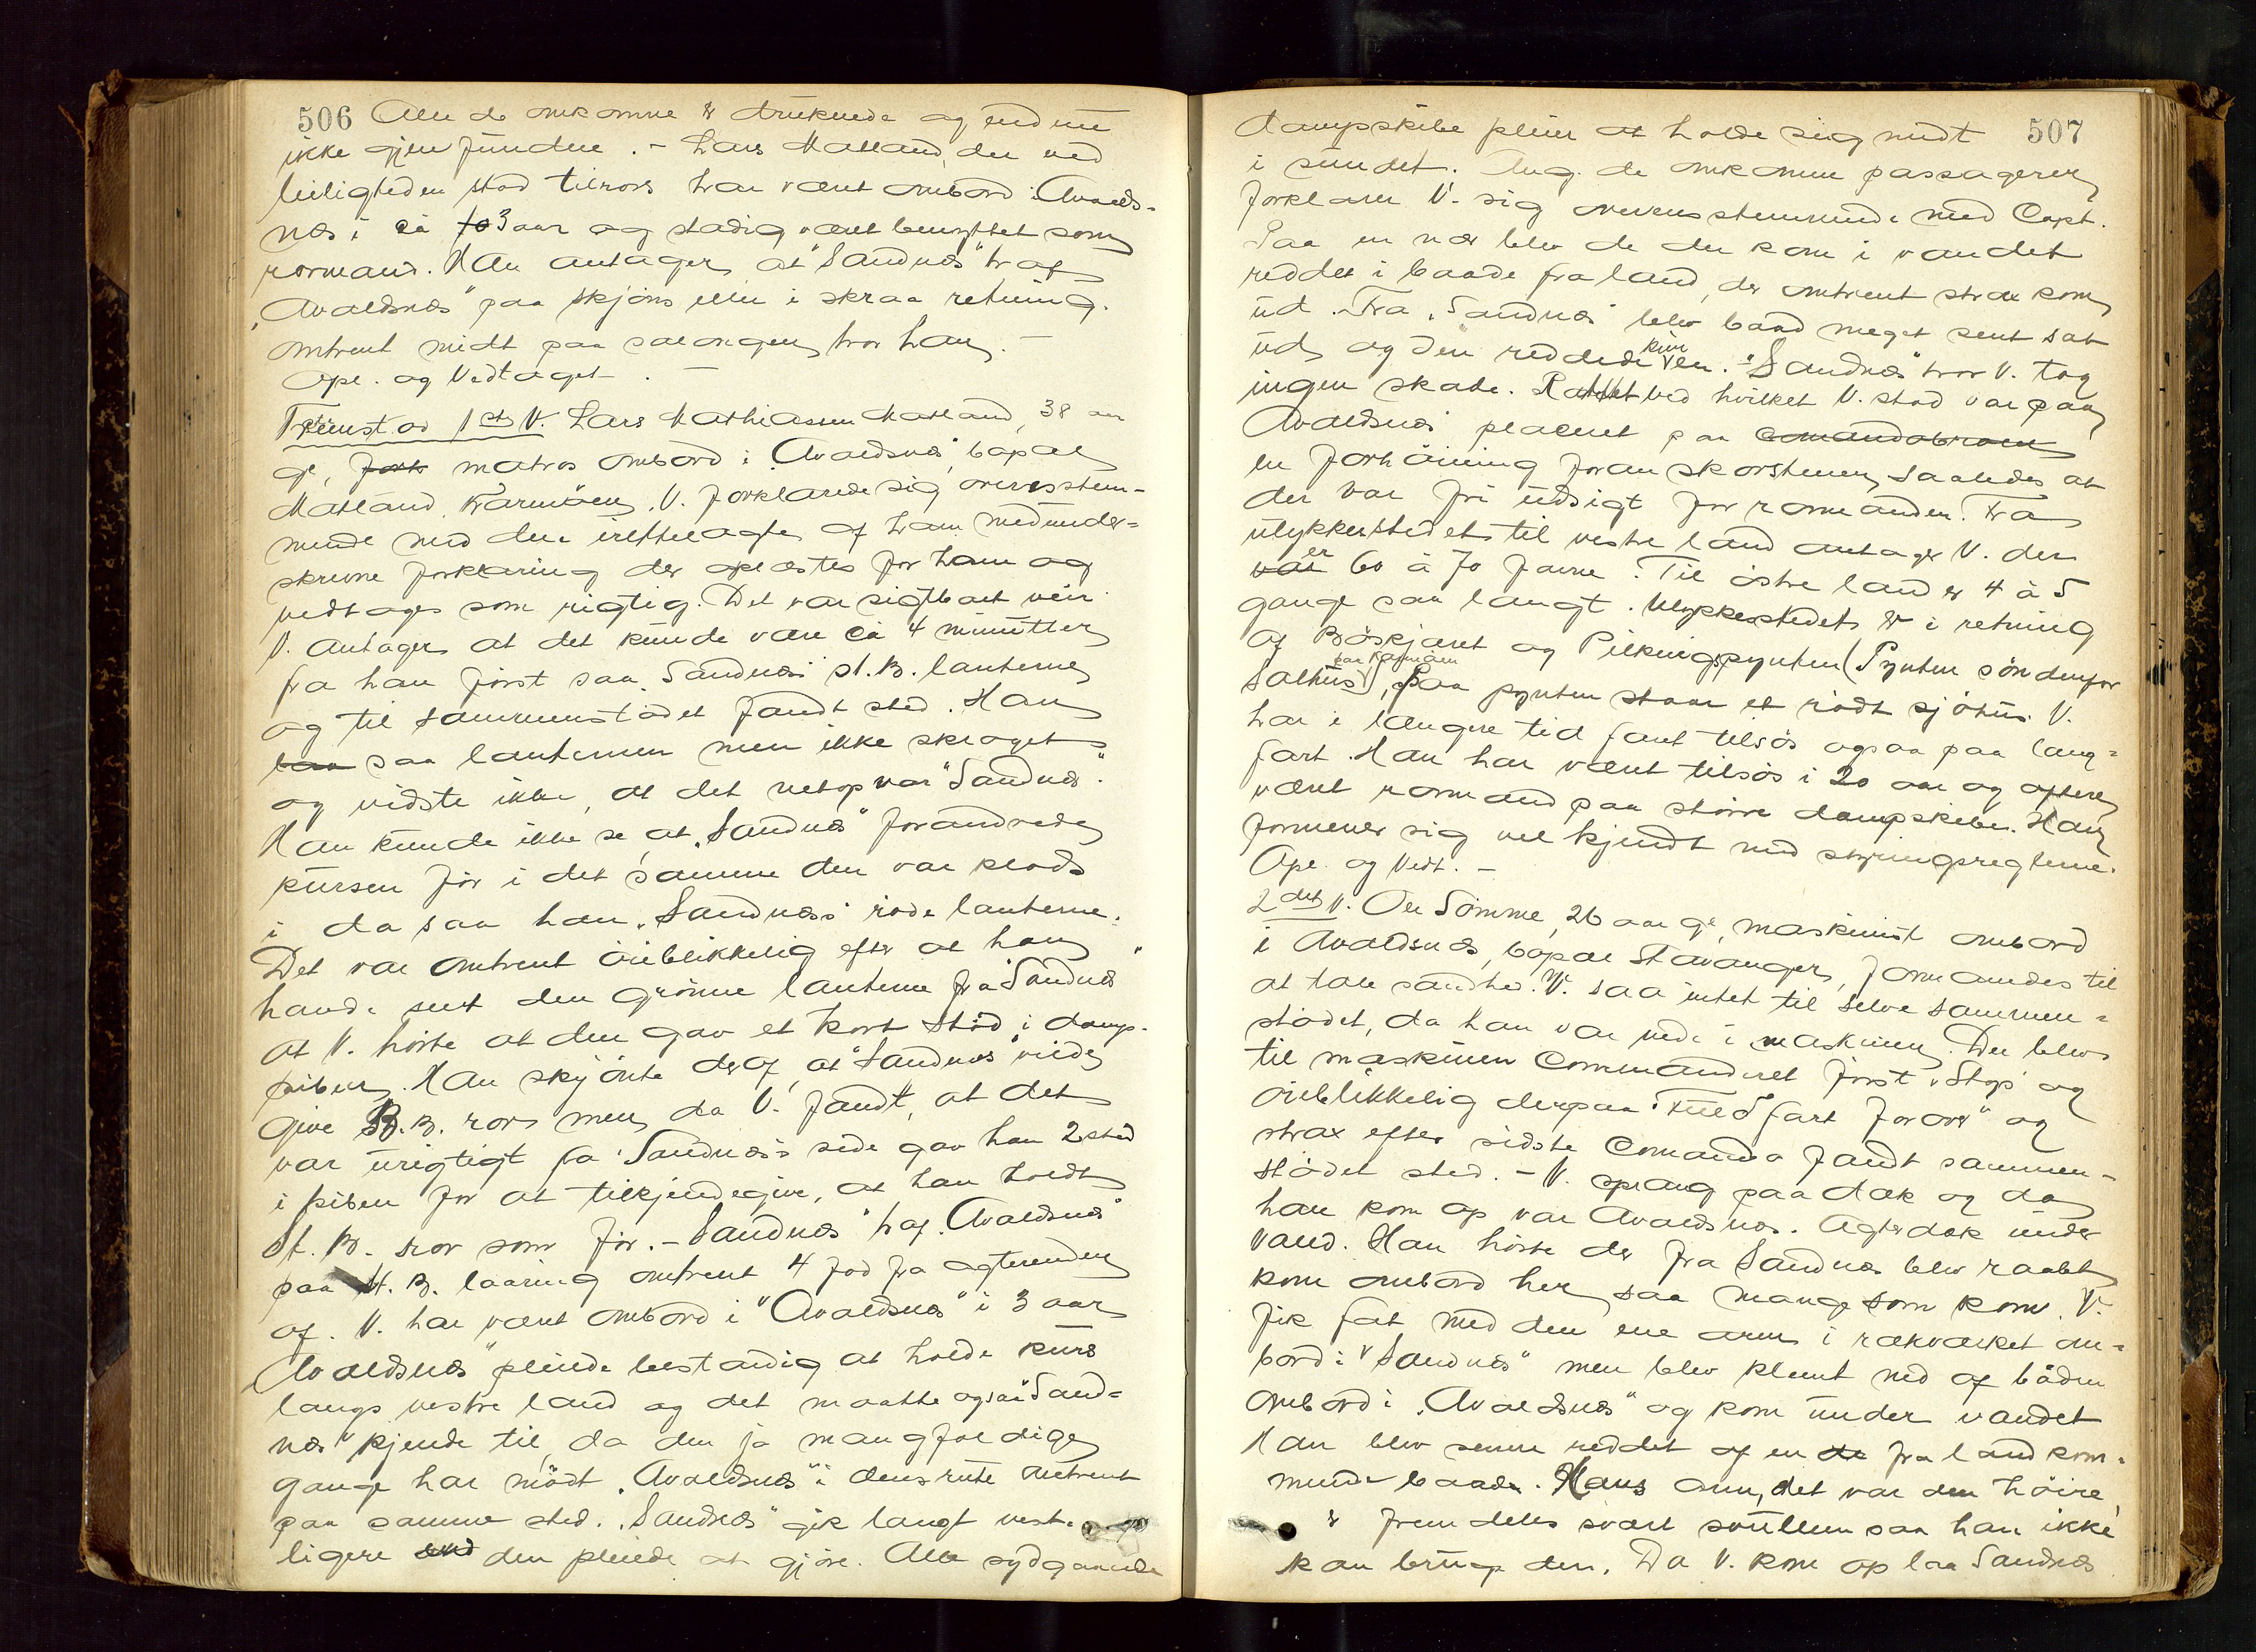 506 Alle de omkomne er druknede og endnu
ikke gjenfundne. - Lars Matland, der ved
leiligheden stod tilrors har været ombord i Avalds-
næs i ca 3 aar og stadig været benyttet som
rormand. Han antager at "Sandnæs" traf
"Avaldsnæs" paa skjøns eller i skraa retning.
omtrent midt paa salongen tror han. -
Opl. og Vedtaget. -
Fremst. as 1ste V. Lars Mathiassen Matland, 38 aar
gl, forkl matros ombord i "Avaldsnæs", bopæl
Matland, Karmøen. V. forklarede sig overensstem-
mende med den irettelagte af ham medunder-
skrevne forklaring der oplæstes for ham og
vedtages som rigtig. Det var sigtbart veir.
V. antager at det kunde være ca 4 minutter
fra han først saa "Sandnæs" st. B. lanterne
og til sammenstødet fandt sted. Han
saa lanternen men ikke skroget
og vidste ikke, at det netop var "Sandnæs".
Han kunde ikke se, at "Sandnæs" forandrede
kursen før i det samme den var klods
i da saa han "Sandnæs's" røde lanterne.
Det var omtrent øieblikkelig efter at han
havde seet den grønne lanterne fra "Sandnæs"
at V. hørte at den gav et kort stød i damp-
piben. Han skjønte deraf, at "Sandnæs" vilde
give B. B. ror men da V. fandt, at det
var urigtigt fra "Sandnæs's side gav han 2 stød
i piben for at tilkjendegive, at han holdt
St. B. ror som før. - "Sandnæs" traf "Avaldsnæs"
paa St. B. laaring omtrent 4 fod fra agterenden
af. V. har været ombord i "Avaldsnæs" i 3 aar
"Avaldsnæs" pleiede bestandig at holde kurs
langs vestre land og det maatte ogsaa "Sand-
næs" kjende til, da den jo mangfoldige
gange har mødt "Avaldsnæs" i dens rute omtrent
paa samme sted. "Sandnæs" gik langt vest-
ligere end den pleiede at gjøre. Alle sydgaaende
dampskibe pleier at holde sig midt 507
i sundet. Ang. de omkomne passagerer
forklarer V. sig overensstemmende med Capt.
Paa en nær blev de der kom i vandet
reddet i baade fra land, der omtrent strax kom
ud. Fra "Sandnæs" blev baad meget sent sat
ud og den reddede kun en. "Sandnæs" tror V. tog
ingen skade. Rattet ved hvilket V. stod var paa
"Avaldsnæs" placeret paa comandobroen
en forhøining foran skorstenen, saaledes at
der var fri udsigt for rormanden. Fra
ulykkesstedet til vestre land antager V. der
er 60 à 70 favne. Til østre land er 4 à 5
gange saa langt. Ulykkesstedet er i retning
af Bøskjæret og Pilkingspynten (Pynten søndenfor
Salhus paa Karmøen), Paa pynten staar et rødt sjøhus. V.
har i længere tid faret tilsøs ogsaa paa lang-
fart. Han har været tilsøs i 20 aar og oftere
været rormand paa større dampskibe. Han
formener sig vel kjendt med styringsreglerne.
Opl. og Vedt. -
2det V. Ole Sømme, 26 aar gl, maskinist ombord
i Avaldsnæs, bopæl Stavanger, formanedes til
at tale sandhed. V. saa intet til selve sammen-
stødet, da han var nede i maskinen. Der blev
til maskinen commanderet først "Stop" og
øieblikkelig derpaa "Fuld fart forover" og
strax efter sidste comando fandt sammen-
stødet sted. - V. sprang paa dæk og da
han kom op var Avaldsnæs. Agterdæk under
vand. Han hørte der fra Sandnæs blev raabt
kom ombord her saa mange som kom. V.
fik fat med den ene arm i rækværket om-
bord i "Sandnæs" men blev klemt ned af båden
ombord i "Avaldsnæs" og kom under vandet
Han blev senere reddet af en fra land kom-
mende baade. Hans arm, det var den høire,
er fremdeles svært svullen saa han ikke
kan bruge den. Da V. kom op laa Sandnæs